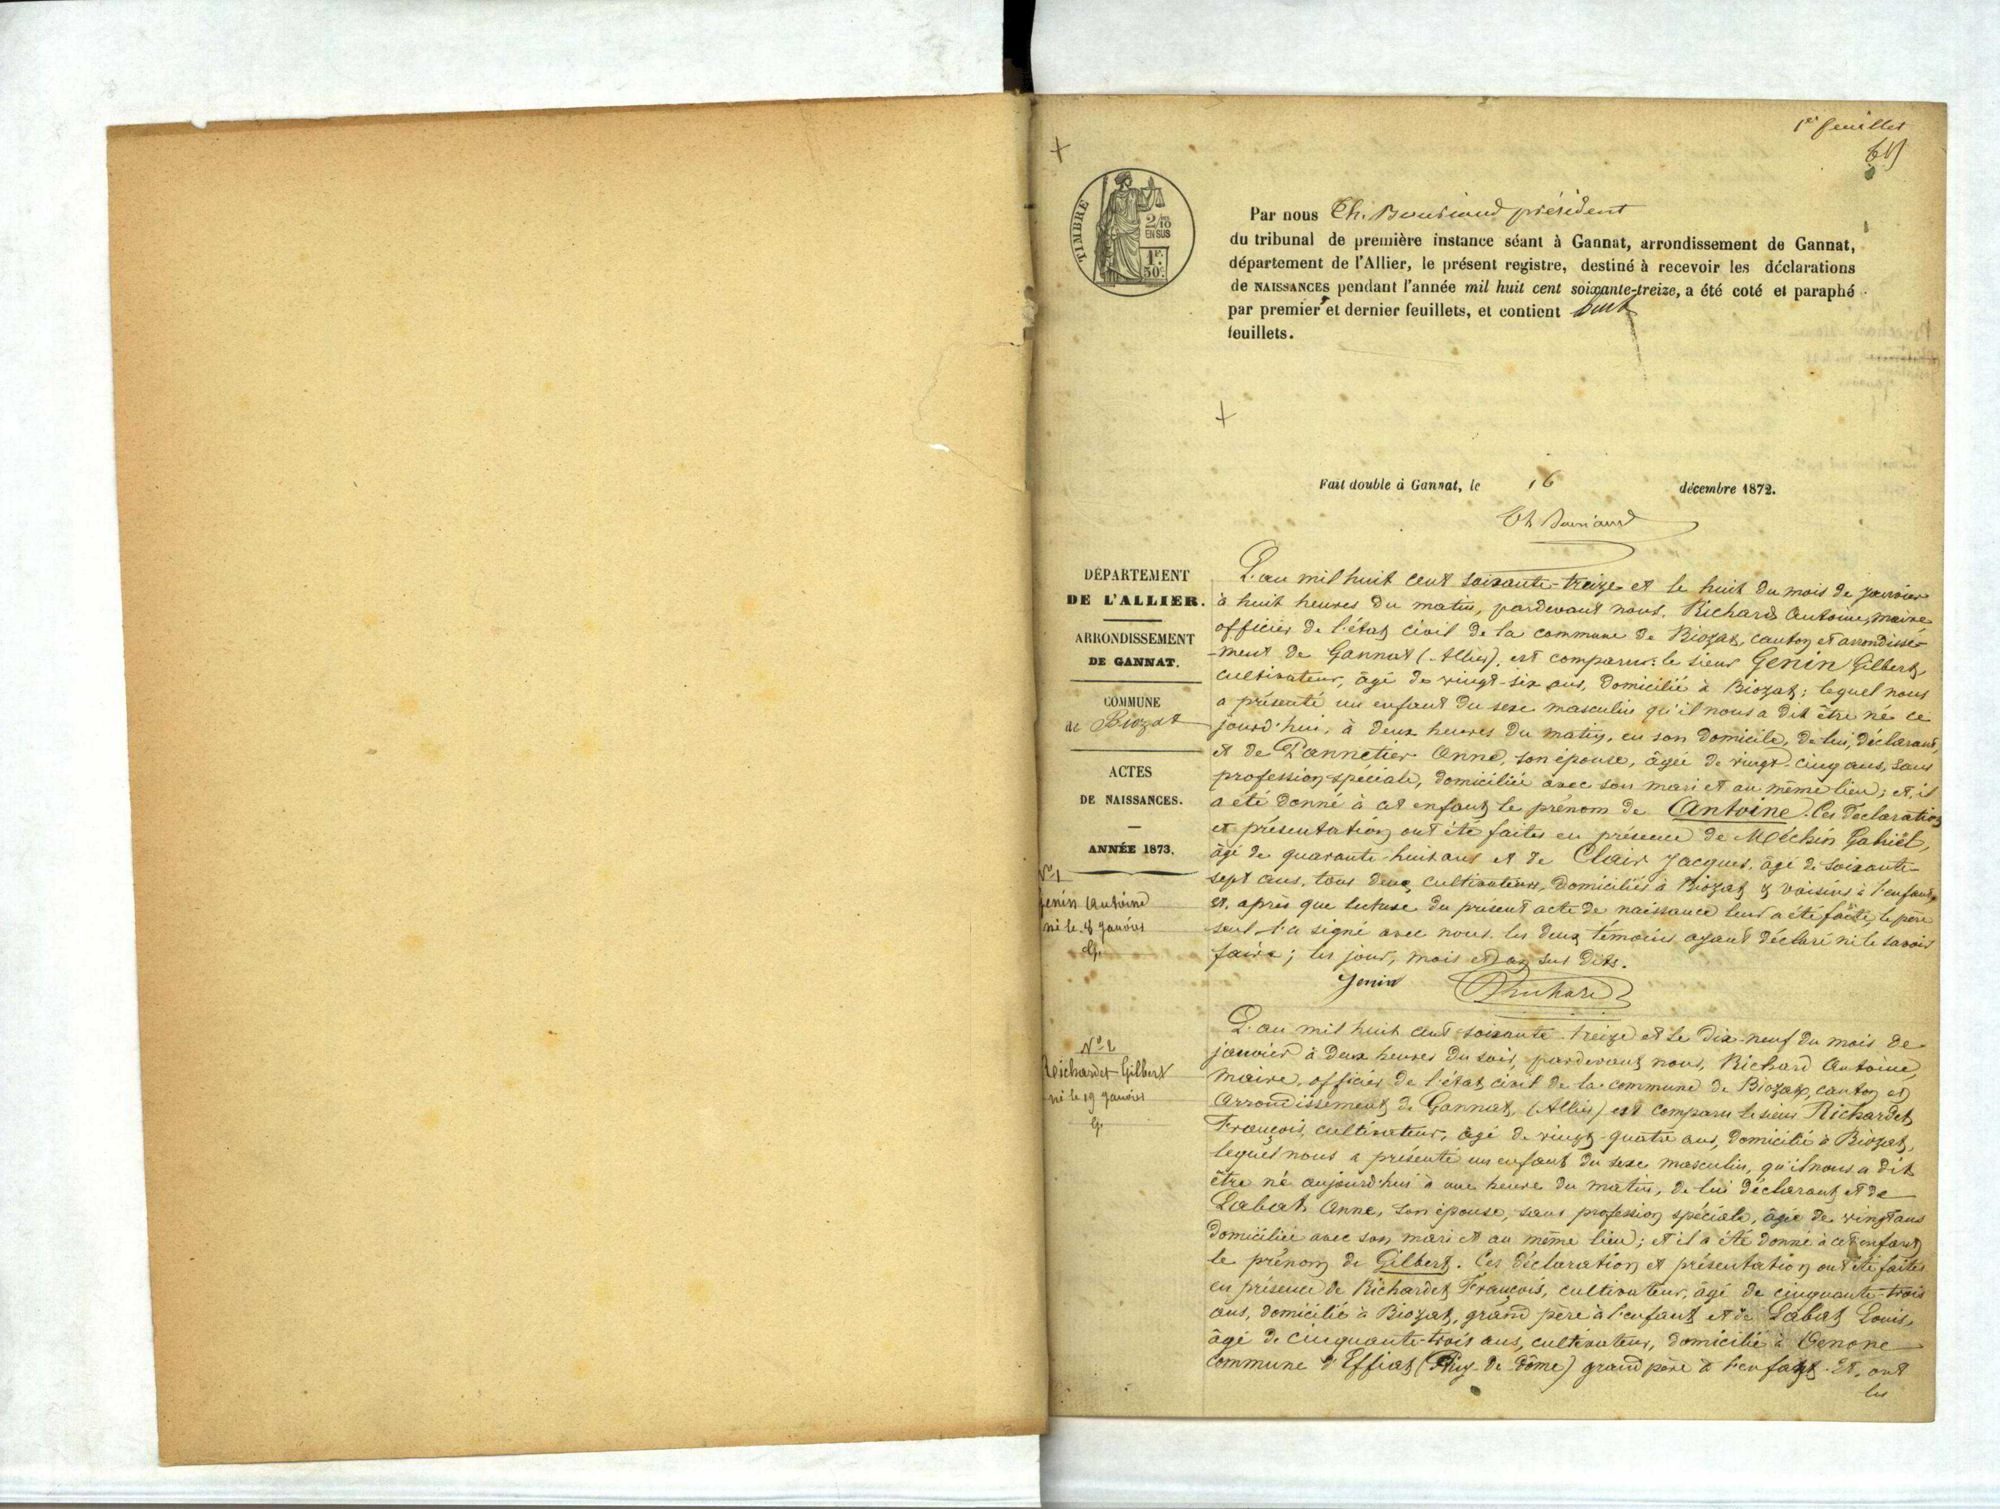 1er feuillet
TIMBRE
2/10
EN SUS
1F.
50c.
Par nous Th. président
du tribunal de première instance séant à Gannat, arrondissement de Gannat,
département de l'Allier, le présent registre, destiné à recevoir les déclarations
de NAISSANCES pendant l'année mil huit cent soixante-treize, a été coté et paraphé
par premier et dernier feuillets, et contient huit
feuillets.
Fait double à Gannat, le 16 décembre 1872.
DÉPARTEMENT
DE L'ALLIER.
ARRONDISSEMENT
DE GANNAT.
COMMUNE
de Biozat
ACTES
DE NAISSANCES.
ANNÉE 1873.
No 1
Genin Antoine
né le 8 janvier
G.
L'an mil huit cent soixante-treize et le huit du mois de janvier
à huit heures du matin, pardevant nous, Richard Antoine, maire,
officier de l'état civil de la commune de Biozat, canton et arrondisse-
-ment de Gannat (Allier), est comparu le sieur Genin Gilbert,
cultivateur, âgé de vingt-six ans, domicilié à Biozat; lequel nous
a présenté un enfant du sexe masculin qu'il nous a dit être né ce
jourd'hui, à deux heures du matin, en son domicile, de lui, déclarant,
et de Pannetier Anne, son épouse, âgée de vingt-cinq ans, sans
profession spéciale, domiciliée avec son mari et au même lieu; et, il
a été donné à cet enfant le prénom de Antoine. Ces déclaration
et présentation ont été faites en présence de Méchin Gabriel,
âgé de quarante-huit ans et de Clair Jacques, âgé de soixante-
sept ans, tous deux cultivateurs, domiciliés à Biozat & voisins à l'enfant,
et, après que lecture du présent acte de naissance leur a été faite, le père
seul l'a signé avec nous, les deux témoins ayant déclaré ne le savoir
faire; les jour, mois et an sus dits.
Genin Richard
No 2
Reichardet Gilbert
né le 19 janvier
G.
L'an mil huit cent soixante-treize et le dix-neuf du mois de
janvier à deux heures du soir, pardevant nous, Richard Antoine,
maire, officier de l'état civil de la commune de Biozat, canton et
arrondissement de Gannat, (Allier) est comparu le sieur Richardet
François, cultivateur, âgé de vingt-quatre ans, domicilié à Biozat,
lequel nous a présenté un enfant du sexe masculin, qu'il nous a dit
être né aujourd'hui à une heure du matin, de lui déclarant et de
Labat Anne, son épouse, sans profession spéciale, âgée de vingt ans
domiciliée avec son mari et au même lieu; et il a été donné à cet enfant
le prénom de Gilbert. Ces déclaration et présentation ont été faites
en présence de Richardet François, cultivateur, âgé de cinquante-trois
ans, domicilié à Biozat, grand père à l'enfant et de Labat Louis,
âgé de cinquante-trois ans, cultivateur, domicilié à Denone
commune d'Effiat (Puy-de-Dôme) grand père à l'enfant. Et, ont
les